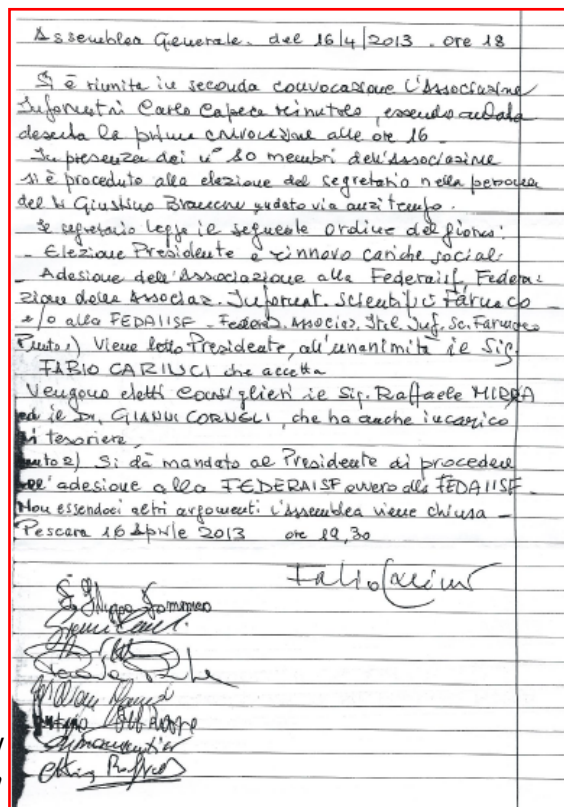 Assemblea Generale. del 16/4/2013 . ore 18
Si è riunita in seconda convocazione l'Associazione
Informatri Carlo Capece Minutolo, essendo andata
deserta la prima convocazione alle ore 16 -
In presenza dei n° 10 membri dell'Associazione
si è proceduto alla elezione del segretario nella persona
del Giustino andato via anzitempo.
Il segretario legge il seguente ordine del giorno:
- Elezione Presidente e rinnovo cariche sociali
- Adesione dell'Associazione alla Federaisf, Federa-
zione delle Associaz. Informat. Scientifici Farmaco
e/o alla FEDAIISF - Federaz. Associaz. Ital. Inf. Sc. Farmaco
Punto 1) Viene letto Presidente, all'unanimità il Sig.
FABIO CARINCI che accetta
Vengono eletti Consiglieri il Sig. Raffaele MIRRA
ed il Dr. GIANNI CORNELI, che ha anche incarico
di tesoriere.
unto 2) Si dà mandato al Presidente di procedere
all'adesione alla FEDERAISF ovvero alla FEDAIISF.
Non essendoci altri argomenti l'assemblea viene chiusa -
Pescara 16 Aprile 2013 ore 19,30
Fabio Carinci